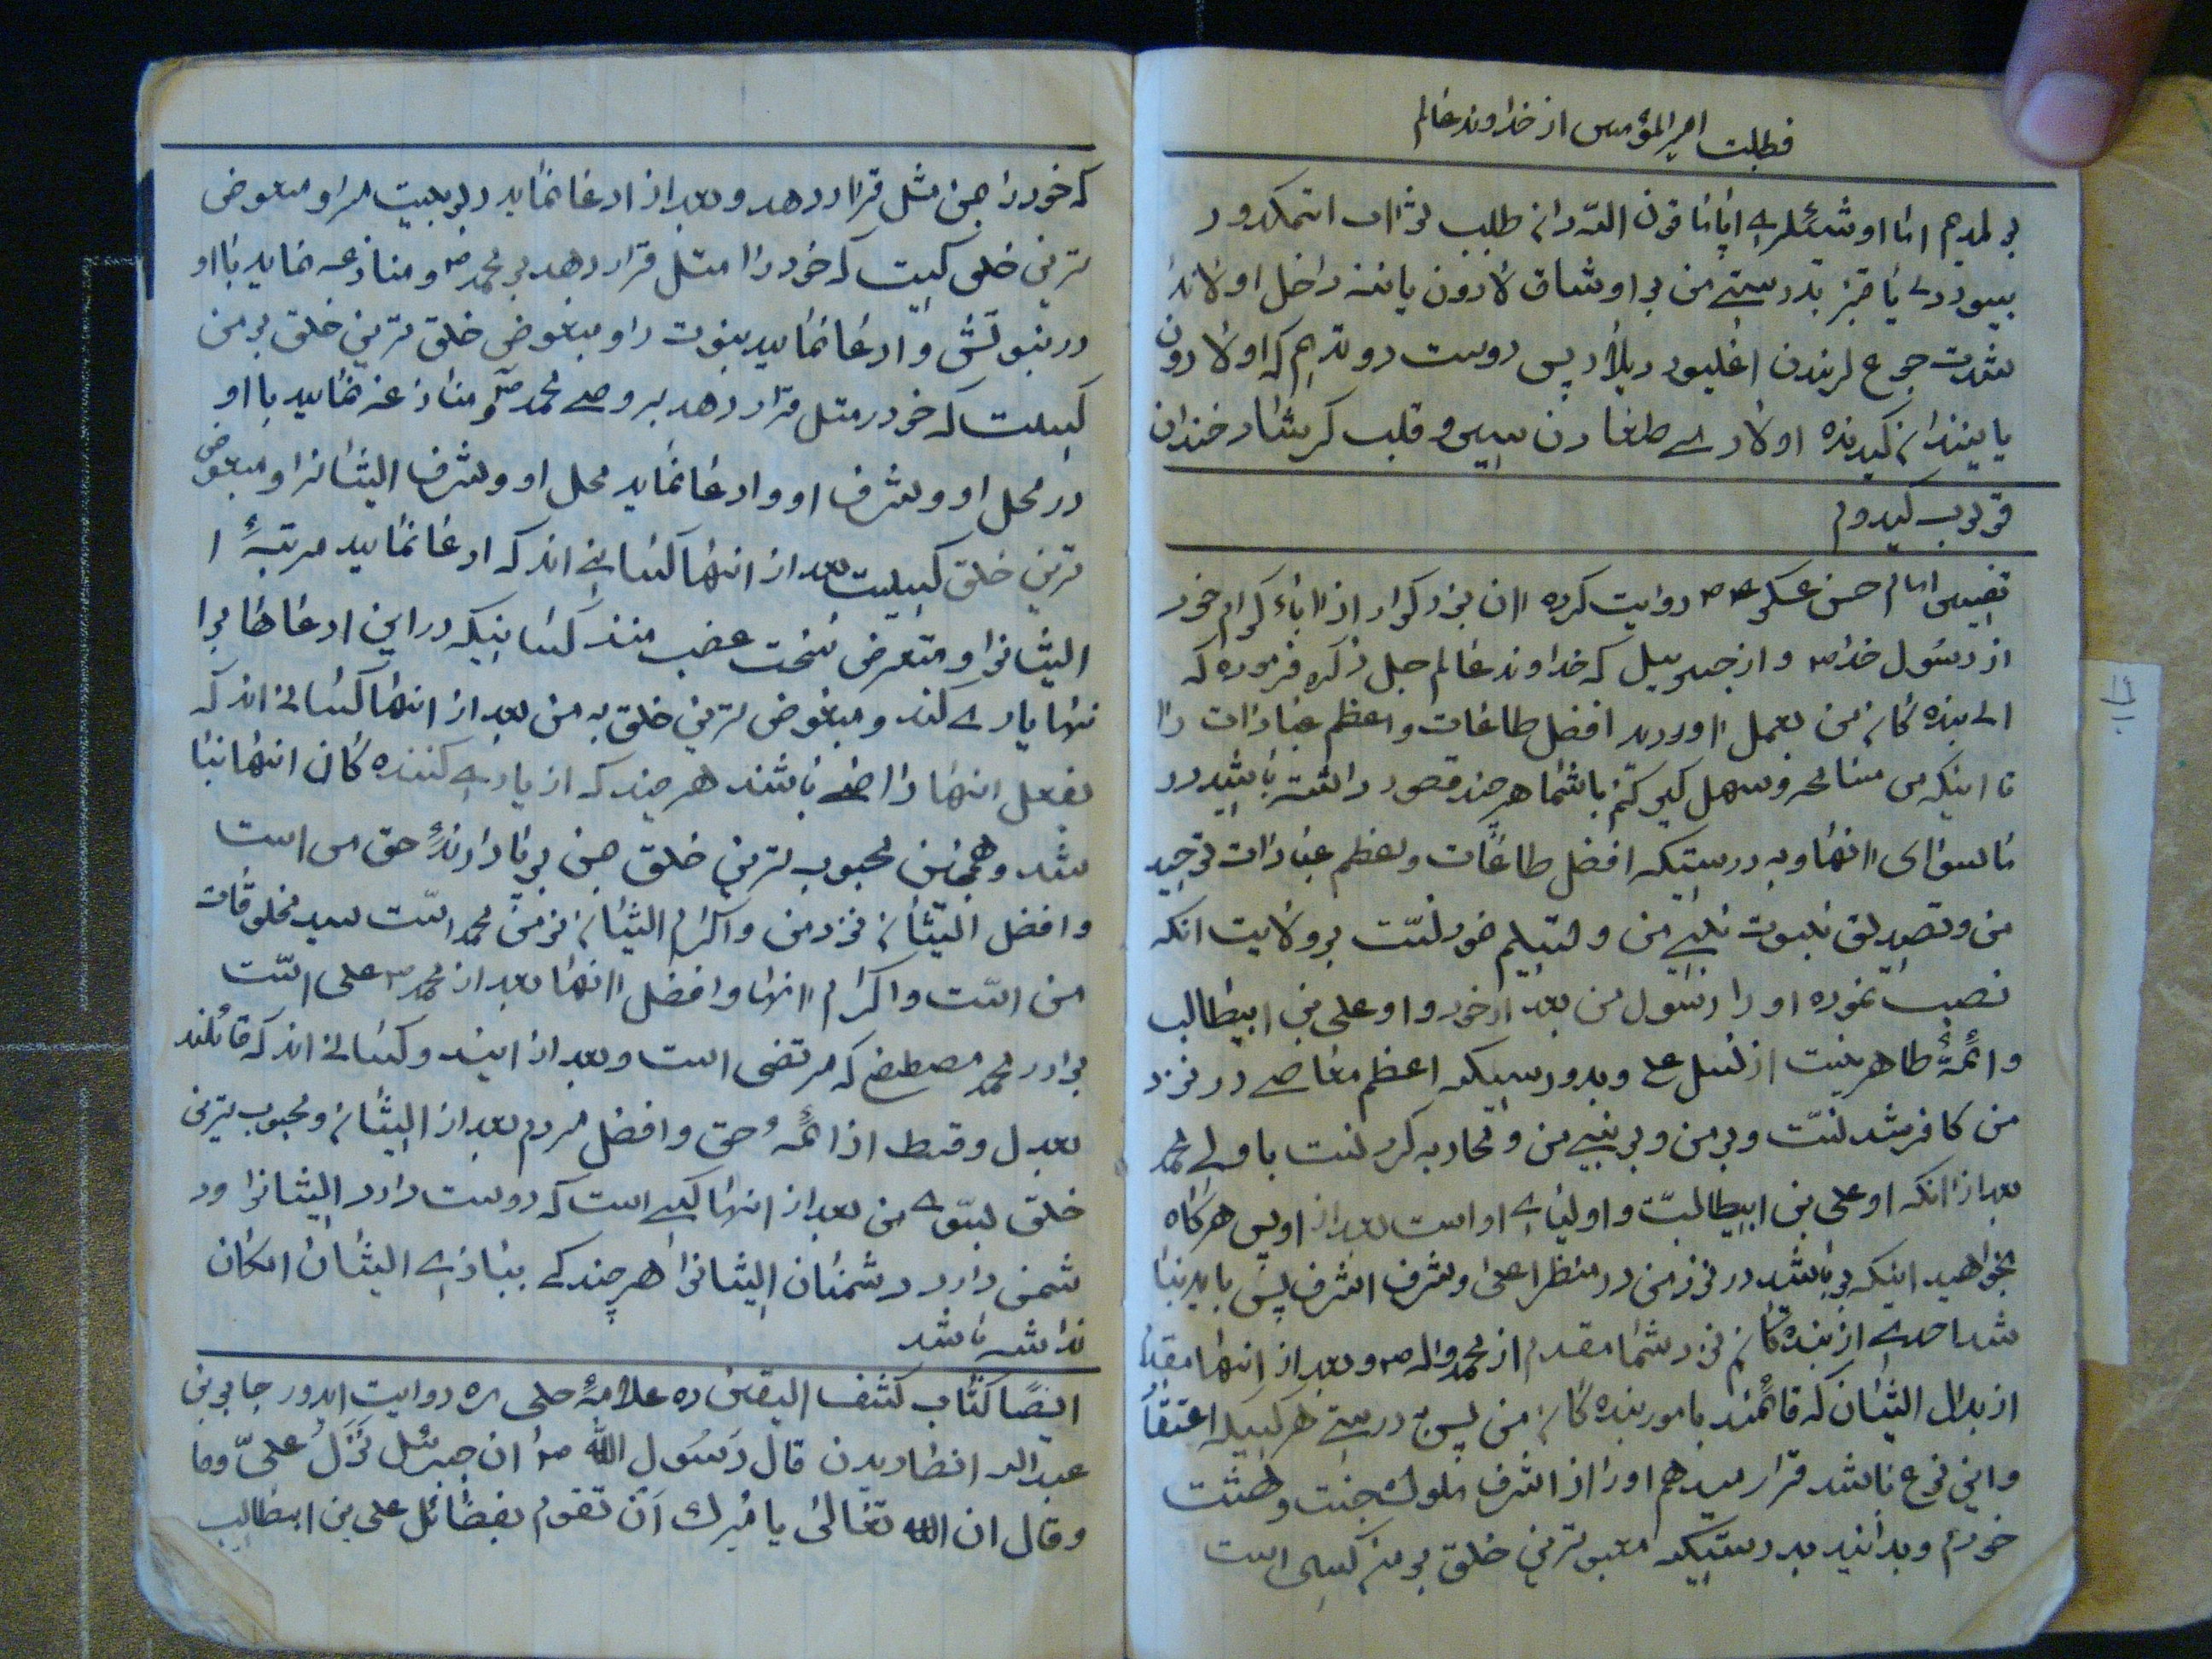 فطلبت امیرالمؤمنین از خداوند عالم
بیوردی یا قنبر بدرستی من بو اوشاق لارون یاننه داخل اولاندا
شدت جوع لریندن اغلیور دیلار پس دوست دوتدیم که اولارون
یانیندان گیدنده اولاری طعامدن سیر و قلب کر شاد خندان
قویوب گیدوم
تفسیر امام حسن عسکری ع روایت کرده ان بزرگوار از اباء کرام خود
از رسول خدا ص و از جبرییل که خداوند عالم جل ذکره فرموده که
ای بنده کان من بعمل اورید افضل طاعات و اعظم عبادات را
تا اینکه من مسامحه و سهل گیر کنم با شما هر چند قصور داشته باشید در
ماسوای انها و به درستیکه افضل طاعات و اعظم عبادات توحید
من و تصدیق نبوت نبی من و تسلیم خود نست بر ولایت انکه
نصب نموده او را رسول من بعد از خود و او علی بن ابیطالب
و ائمهٔ طاهرینست از نسل علی و بدرستیکه اعظم معاصی در نزد
من کافر شد نست و بر من و بر نبی من و محاربه کرد نست با ولی محمد
بعد از انکه او علی بن ابیطالبست و اولیای او است بعد از او پس هرکاه
بخواهید اینکه بوباشید در نزد من در منظر اعلی و شرف اشرف پس باید نبا
شد احدی از بنده کانم نزد شما مقدم از محمد و اله ص و بعد از انها مقدم
از بدال ایشان که قائمند بامور بنده کان من پس بدرستی هر کسیکه اعتقا
و این نوع باشد قرار میدهم او را از اشرف ملوک جنت و هشت
خودم و بدانید بدرستیکه مبغوض ترین خلق بر من کسی است
که خود را بمن مثل قرار دهد و بعد از ادعا نماید ربوبیت مرا و مبغوض
ترین خلق کیست که خود را مثل قرار دهد بر محمد ص و منازعه نماید با او
در نبوتش و ادعا نماید نبوت را و مبغوض ترین خلق بر من
کسیست که خود مثل قرار دهد بر وصی محمد ص و منازعه نماید با او
در محل او و شرف او و ادعا نماید محل او و شرف ایشانرا و مبغوض
ترین خلق کسیست بعد از انها کسانی اند که ادعا نمایید مرتبهٔ ا
ایشانرا و متعرض سخت غضب منند کسانیکه در این ادعاها برا
نها یاری کند و مبغوض ترین خلق به من بعد از انها کسانی اند که
بفعل انها راضی باشند هر چند که از یاری کننده کان انها نبا
شد و همچنین محبوب ترین خلق بمن برپا دارندهٔ حق من است
و افضل ایشان نزد من و اکرام ایشان نزد من محمد است سید مخلوقات
من است و اکرام انها و افضل انها بعد از محمد ص علی است
برادر محمد مصطفی که مرتضی است و بعد از ایند و کسانی اند که قائلند
بعدل و قسط از ائمهٔ حق و افضل مردم بعد از ایشان و محبوب ترین
خلق بسوی من بعد از انها کسی است که دوست دارد ایشانرا و د
شمن دارد دشمنان ایشانرا هر چند که بیاری ایشان امکان
نداشته باشد
ایضا کتاب کشف الیقین ده علامهٔ حلی ره روایت ایدور جابر بن
عبدالله انصاریدن قال رسول الله ص ان جبرئیل نزل علی و ما
و قال ان الله تعالی یامرک ان تقوم بفضائل علی بن ابیطالب